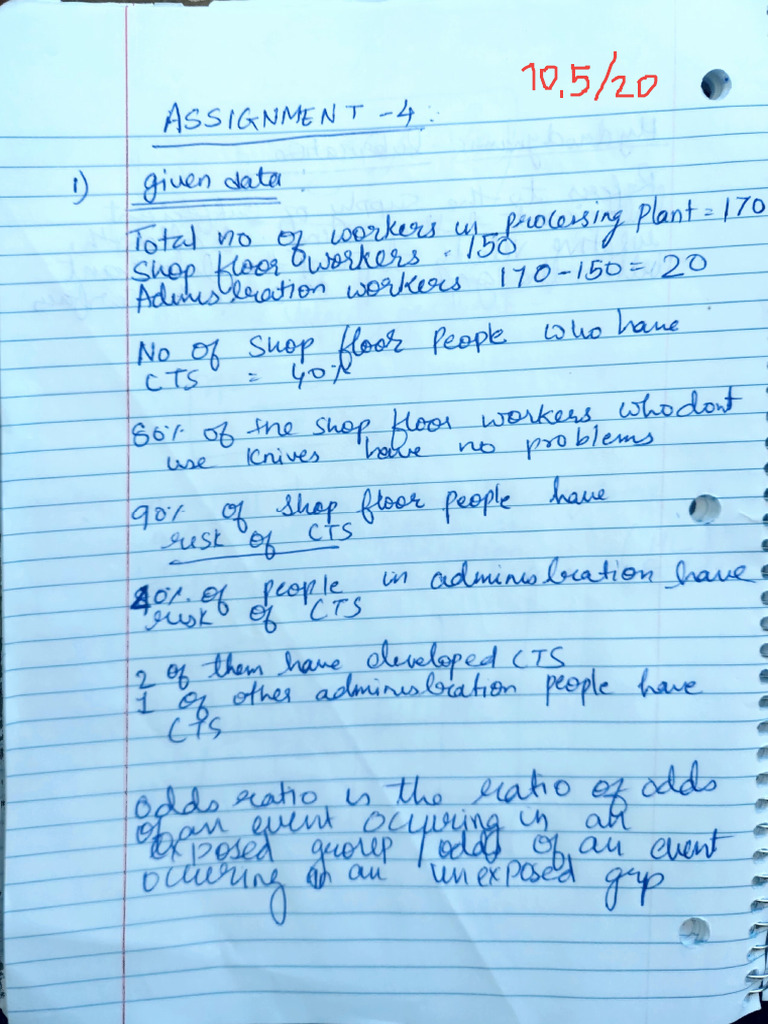 10.5/20
ASSIGNMENT -4 :
1) given data :
Total no of workers in processing Plant = 170
Shop floor workers = 150
Adminis tration workers 170-150 = 20
No of Shop floor People who have
CTS = 40%
80% of the shop floor workers who dont
use Knives have no problems
90% of shop floor people have
risk of CTS
40% of people in adminis tration have
risk of CTS
2 of them have developed CTS
1 of other administration people have
CTS
odds ratio is the ratio of odds
of an event occuring in an
exposed group / odds of an event
occuring in an unexposed grp